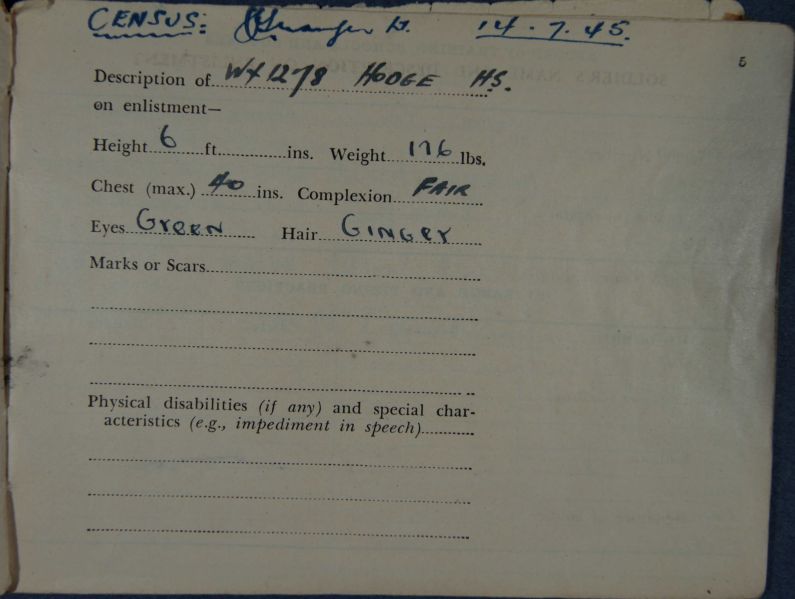 CENSUS: 14.7.45.
5
Description of WX1278 HODGE H.S.
on enlistment—
Height 6 ft. ins. Weight 176 lbs.
Chest (max.) 40 ins. Complexion FAIR
Eyes GREEN Hair GINGER
Marks or Scars
Physical disabilities (if any) and special char-
acteristics (e.g., impediment in speech)